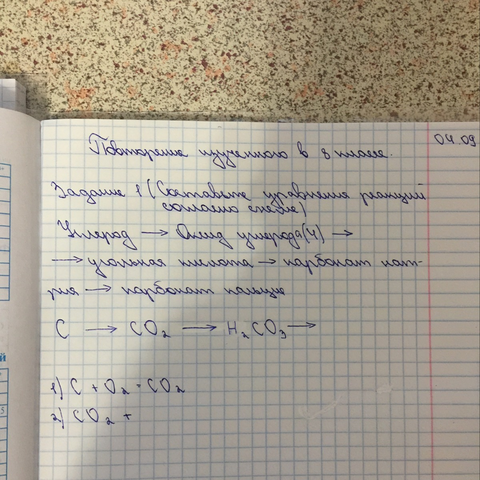 04.09
Повторение изученного в 8 классе.
Задание 1 (Составьте уравнения реакций
согласно схеме)
Углерод → Оксид углерода(4) →
→ угольная кислота → карбонат нат-
рия → карбонат кальция
C → CO₂ → H₂CO₃ →
1) C + O₂ = CO₂
2) CO₂ +
й